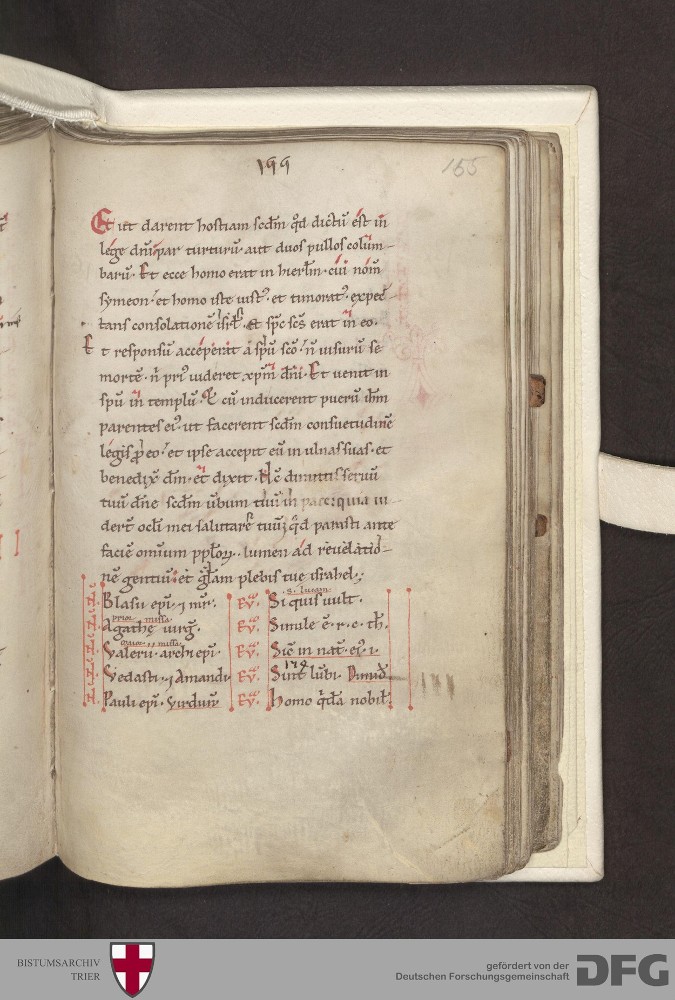 155
Et ut darent hostiam scdm qd dictū est in
lege dnī par turturū aut duos pullos colum-
barū. Et ecce homo erat in hierlm. cui nom̄
symeon. et homo iste iust'. et timorat'. expec-
tans consolationē isrl. et spc scs erat in eo.
Et responsū acceperat a spū scō. n̄ visurū se
mortē. n̄ pri' videret xpm dnī. Et venit in
spū in templū. Et cū inducerent puerū ihm
parentes ei'. ut facerent scdm consuetudinē
legis p eo. et ipse accepit eū in ulnas suas. et
benedix dm. et dixit. Nc dimittis servū
tuū dne scdm ubum tuū in pace. quia vi-
dert ocli mei salutare tuū. qd parasti ante
faciē omium pplory. lumen ad revelatio-
nē gentiū. et glam plebis tue israhel.
s. lucam
Blasii epi. ⁊ mr. Ev. Si quis vult.
prior missa
Agathę virg. Ev. Simile ē. r. c. th.
maior missa
Valerii archi epi. Ev. Sic in nat. ei'. i.
Vedasti. ⁊ Amandi Ev. Sint lubi.
Pauli epi. Virdun Ev. Homo qda nobil.
BISTUMSARCHIV
TRIER
gefördert von der
Deutschen Forschungsgemeinschaft
DFG